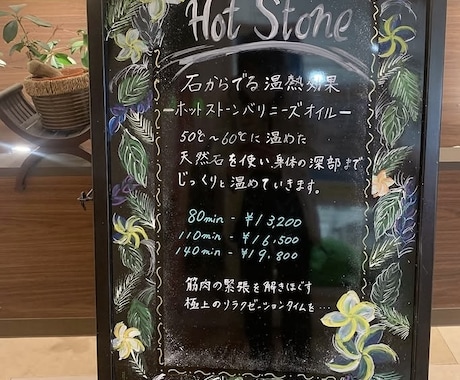 Hot Stone
石からでる温熱効果
ーホットストーンバリニーズオイルー
50℃〜60℃に温めた
天然石を使い身体の深部まで
じっくりと温めていきます。
80min - ¥13,200
110min - ¥16,500
140min - ¥19,800
筋肉の緊張を解きほぐす
極上のリラクゼーションタイムを…